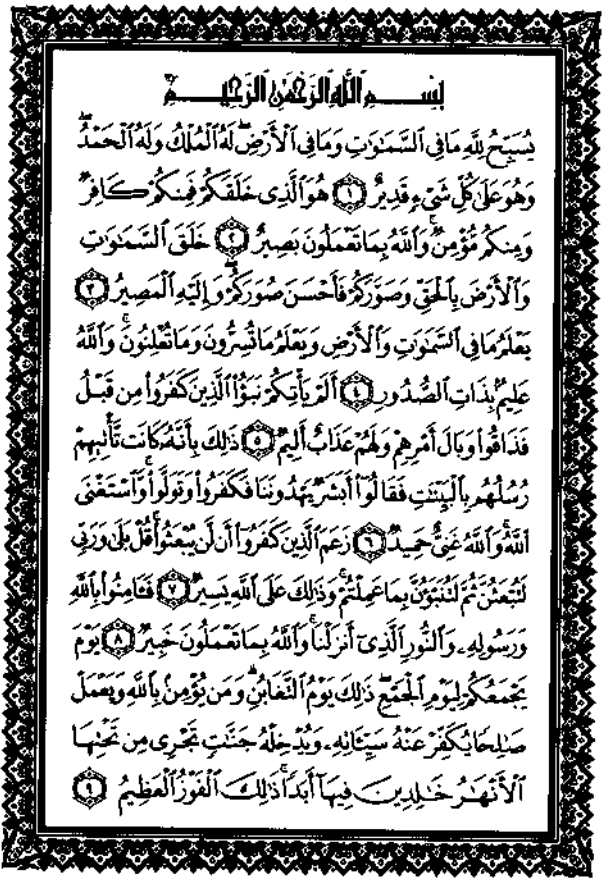 بِسْمِ ٱللَّهِ ٱلرَّحْمَٰنِ ٱلرَّحِيمِ
يُسَبِّحُ لِلَّهِ مَا فِى ٱلسَّمَٰوَٰتِ وَمَا فِى ٱلْأَرْضِ ۖ لَهُ ٱلْمُلْكُ وَلَهُ ٱلْحَمْدُ ۖ
وَهُوَ عَلَىٰ كُلِّ شَىْءٍ قَدِيرٌ ١ هُوَ ٱلَّذِى خَلَقَكُمْ فَمِنكُمْ كَافِرٌ
وَمِنكُم مُّؤْمِنٌ ۚ وَٱللَّهُ بِمَا تَعْمَلُونَ بَصِيرٌ ٢ خَلَقَ ٱلسَّمَٰوَٰتِ
وَٱلْأَرْضَ بِٱلْحَقِّ وَصَوَّرَكُمْ فَأَحْسَنَ صُوَرَكُمْ ۖ وَإِلَيْهِ ٱلْمَصِيرُ ٣
يَعْلَمُ مَا فِى ٱلسَّمَٰوَٰتِ وَٱلْأَرْضِ وَيَعْلَمُ مَا تُسِرُّونَ وَمَا تُعْلِنُونَ ۚ وَٱللَّهُ
عَلِيمٌۢ بِذَاتِ ٱلصُّدُورِ ٤ أَلَمْ يَأْتِكُمْ نَبَؤُا۟ ٱلَّذِينَ كَفَرُوا۟ مِن قَبْلُ
فَذَاقُوا۟ وَبَالَ أَمْرِهِمْ وَلَهُمْ عَذَابٌ أَلِيمٌ ٥ ذَٰلِكَ بِأَنَّهُۥ كَانَت تَّأْتِيهِمْ
رُسُلُهُم بِٱلْبَيِّنَٰتِ فَقَالُوٓا۟ أَبَشَرٌ يَهْدُونَنَا فَكَفَرُوا۟ وَتَوَلَّوا۟ ۚ وَّٱسْتَغْنَى
ٱللَّهُ ۚ وَٱللَّهُ غَنِىٌّ حَمِيدٌ ٦ زَعَمَ ٱلَّذِينَ كَفَرُوٓا۟ أَن لَّن يُبْعَثُوا۟ ۚ قُلْ بَلَىٰ وَرَبِّى
لَتُبْعَثُنَّ ثُمَّ لَتُنَبَّؤُنَّ بِمَا عَمِلْتُمْ ۚ وَذَٰلِكَ عَلَى ٱللَّهِ يَسِيرٌ ٧ فَـَٔامِنُوا۟ بِٱللَّهِ
وَرَسُولِهِۦ وَٱلنُّورِ ٱلَّذِىٓ أَنزَلْنَا ۚ وَٱللَّهُ بِمَا تَعْمَلُونَ خَبِيرٌ ٨ يَوْمَ
يَجْمَعُكُمْ لِيَوْمِ ٱلْجَمْعِ ۖ ذَٰلِكَ يَوْمُ ٱلتَّغَابُنِ ۗ وَمَن يُؤْمِنۢ بِٱللَّهِ وَيَعْمَلْ
صَٰلِحًا يُكَفِّرْ عَنْهُ سَيِّـَٔاتِهِۦ وَيُدْخِلْهُ جَنَّٰتٍ تَجْرِى مِن تَحْتِهَا
ٱلْأَنْهَٰرُ خَٰلِدِينَ فِيهَآ أَبَدًا ۚ ذَٰلِكَ ٱلْفَوْزُ ٱلْعَظِيمُ ٩